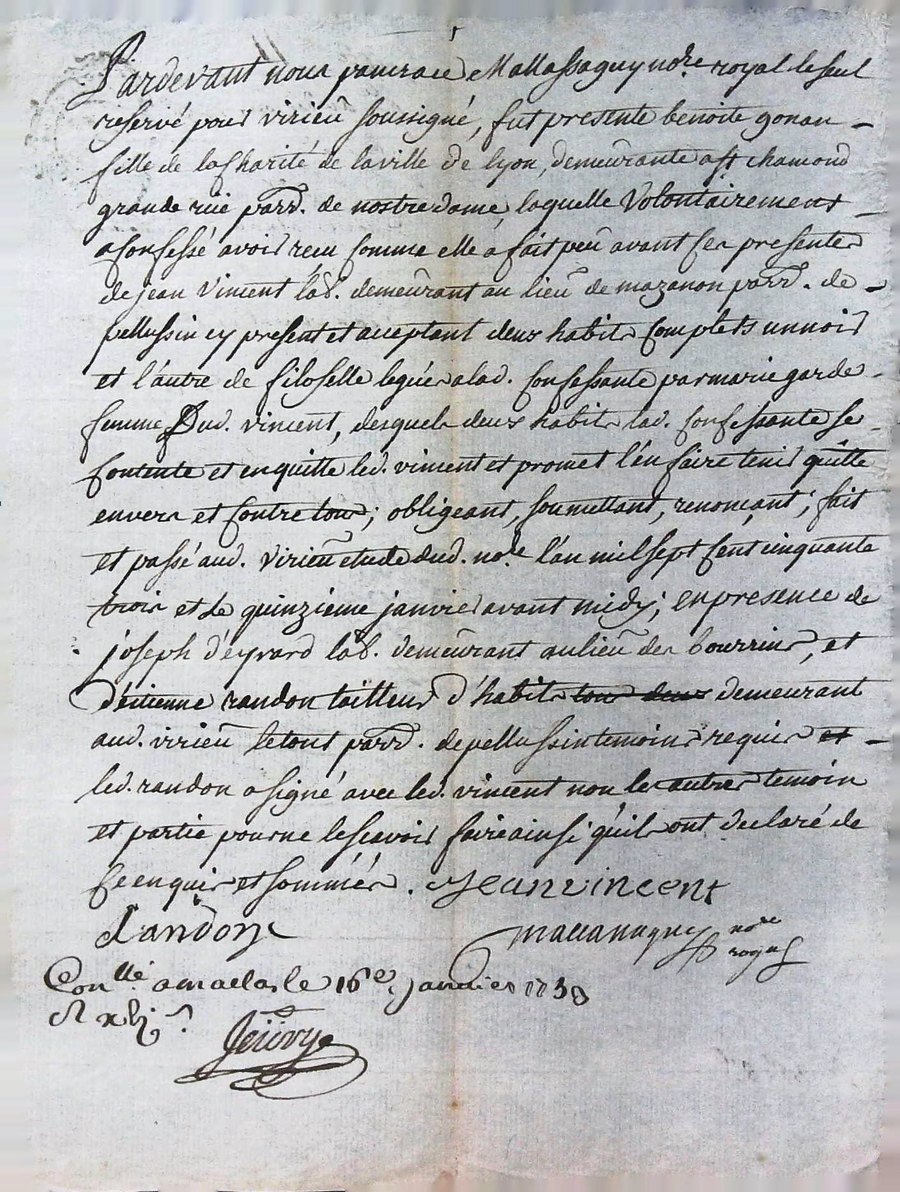 Pardevant nous pancrace Mallassaguy nore. royal le seul
reservé pour virieu soussigné, fut presente benoite gonan
fille de la Charité de la ville de lyon, demeurante a st chamond
grande rüe parr. de nostre dame, laquelle Volontairement
a Confessé avoir recu Comme elle a fait peu avant ces presentes
de jean Vincent lab. demeurant au lieu de mazanon parr. de
pellussin cy present et acceptant deux habits Complets un noir
et l'autre de filoselle legués a lad. Confessante par marie garde
femme Dud. vincent, desquels deux habits lad. Confessante se
Contente et en quitte led. vincent et promet l'en faire tenir quitte
envers et Contre tous; obligeant, soumettant, renonçant; fait
et passé aud. virieu etude dud. nore. l'an mil sept Cent cinquante
trois et le quinzieme janvier avant midy; en presence de
joseph d'eyrard lab. demeurant au lieu des bourrins, et
d'etienne randon tailleur d'habits tous deux demeurant
aud. virieu le tout parr. de pellussin temoins requis et
led. randon a signé avec led. vincent non les autres temoin
et partie pour ne le scavoir faire ainsi qu'ils ont declaré de
ce enquis et sommés. Jean vincent
Randon
nore
royal
Conllé a le 16e. janvier